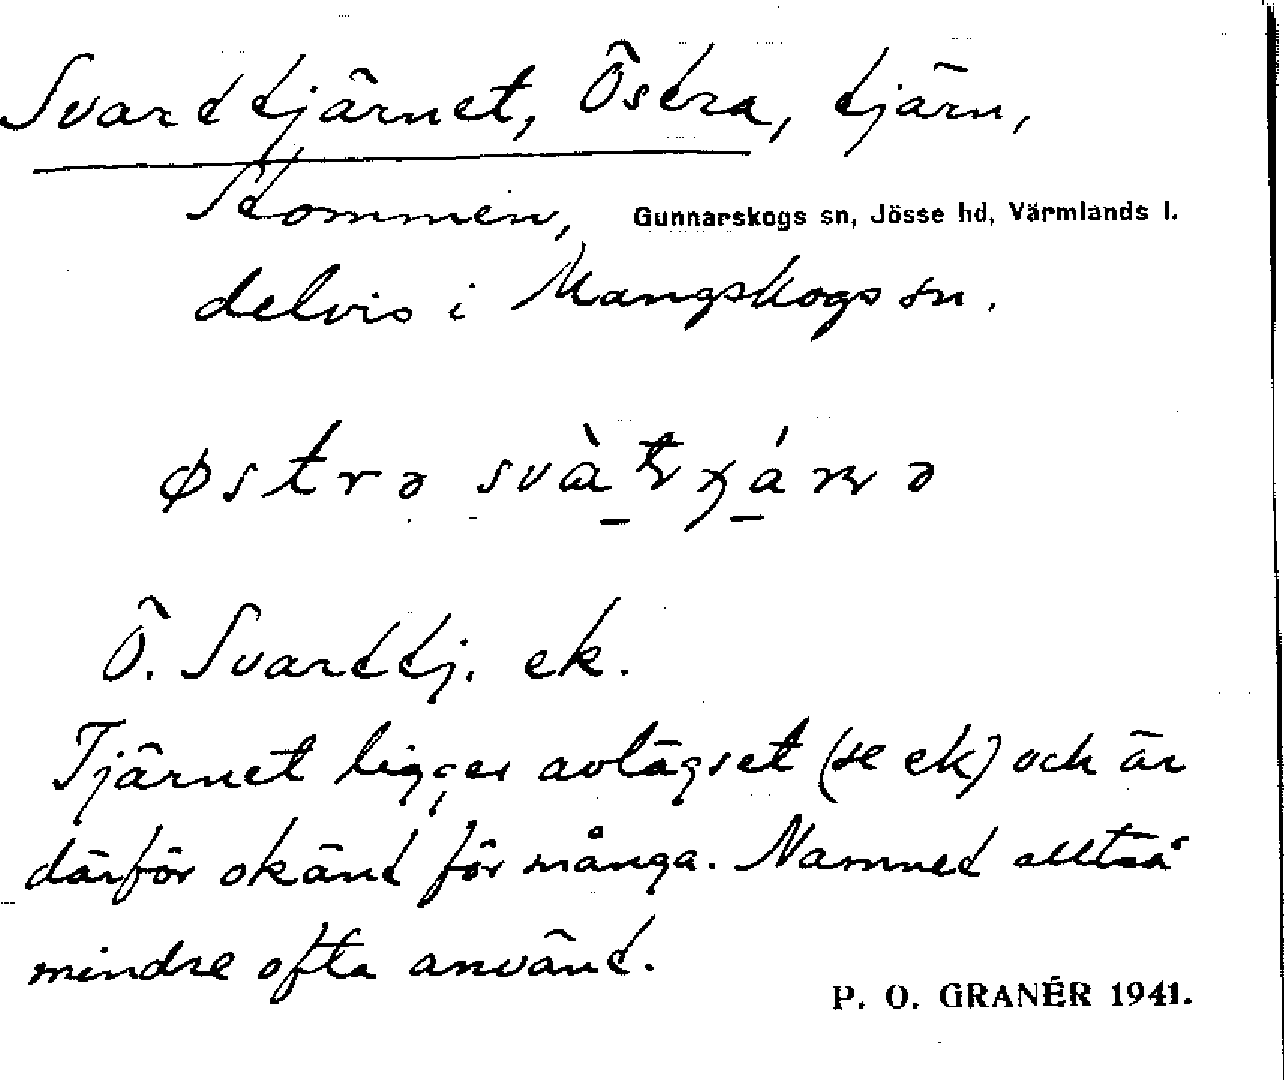 Svarttjärnet, Östra, tjärn,
Stommen, Gunnarskogs sn, Jösse hd, Värmlands l.
delvis i Mangskogs sn.
østrə svàtχánə
Ö. Svarttj. ek.
Tjärnet ligger avlägset (se ek) och är
därför okänt för många. Namnet alltså
mindre ofta använt.
P. O. GRANÉR 1941.